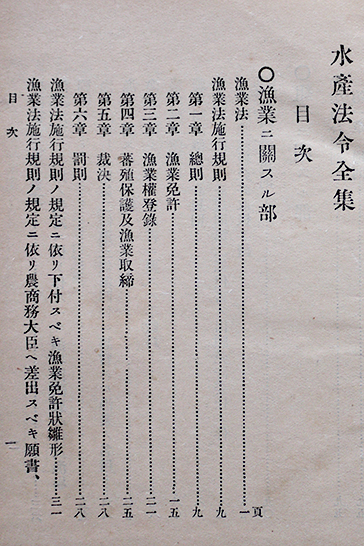 水產法令全集
目次
〇漁業ニ關スル部
漁業法……………………一頁
漁業法施行規則……………………九
第一章 總則……………………九
第二章 漁業免許……………………一五
第三章 漁業權登錄……………………二一
第四章 蕃殖保護及漁業取締……………………二五
第五章 裁決……………………二八
第六章 罰則……………………二八
漁業法施行規則ノ規定ニ依リ下付スベキ漁業免許狀雛形……三一
漁業法施行規則ノ規定ニ依リ農商務大臣ヘ差出スベキ願書、
目次 一